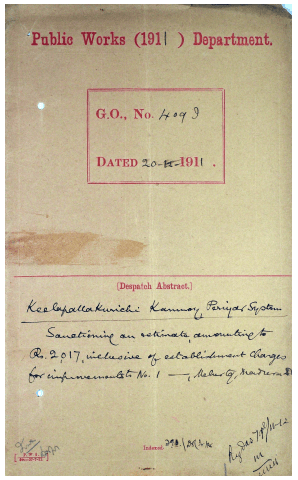 Public Works (1911) Department.
G.O., No. 409 I
DATED 20- -1911.
(Despatch Abstract.)
Keelapallakurichi Kanmoy Periyar System
Sanctioning an estimate, amounting to
Rs. 2,017, inclusive of establishment charges
for improvements to No. 1 —, Melur Tq, Madura Dt
Indexed